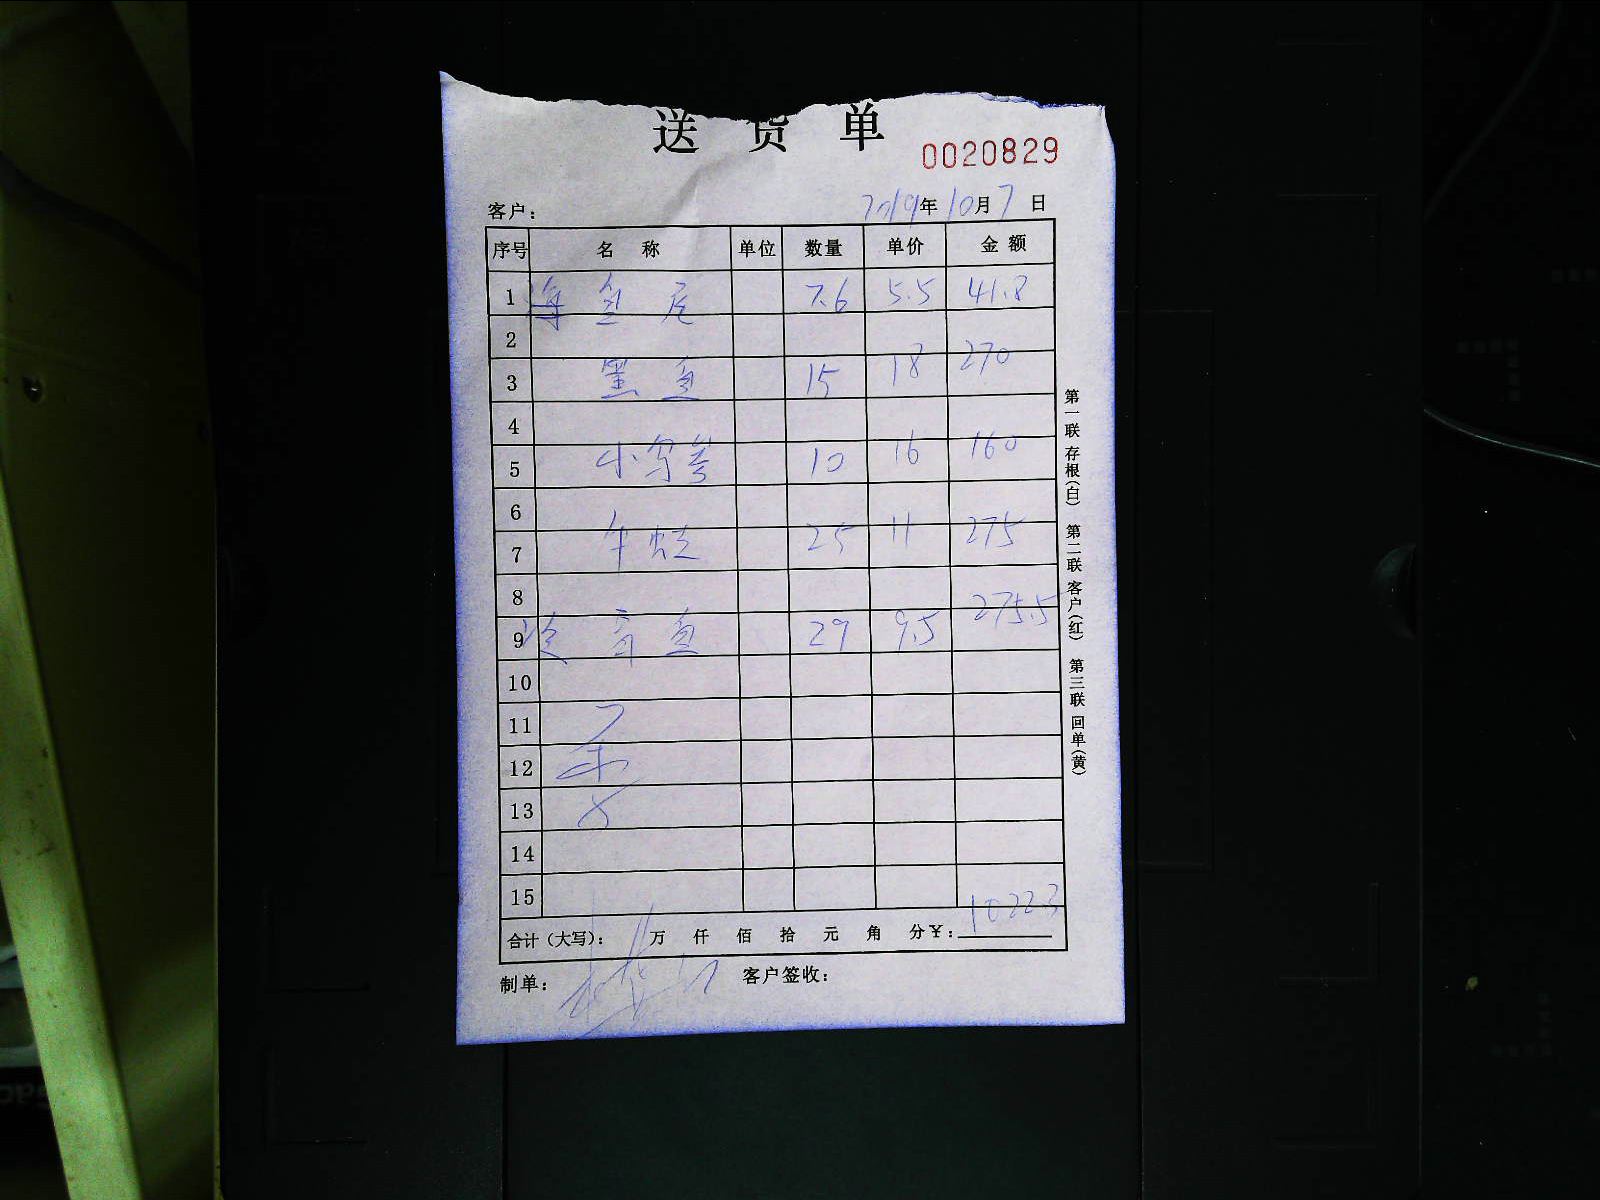 送货单
0020829
客户： 2019年10月7日
序号 名称 单位 数量 单价 金额
1 海鱼尼 7.6 5.5 41.8
2
3 黑鱼 15 18 270
4
5 小 10 16 160
6
7 牛蛙 25 11 275
8
9 鱼 29 9.5 275.5
10
11
12
13
14
15
合计（大写）： 万 仟 佰 拾 元 角 分￥：1022.3
制单： 客户签收：
第一联 存根（白） 第二联 客户（红） 第三联 回单（黄）